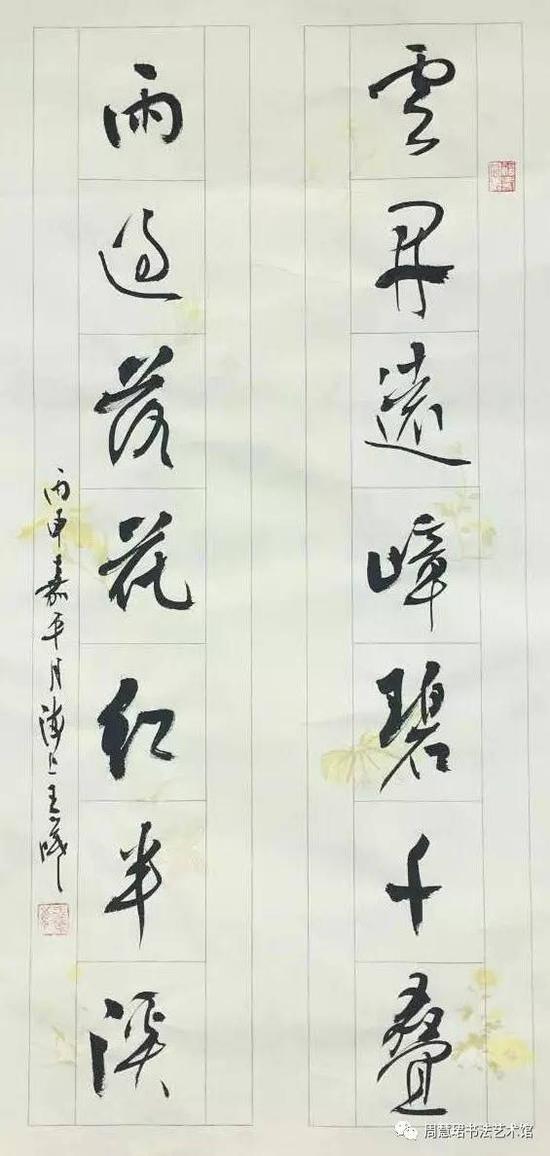 雲開遠嶂碧千疊
雨過落花紅半溪
丙申嘉平月海上王曦
周慧珺书法艺术馆